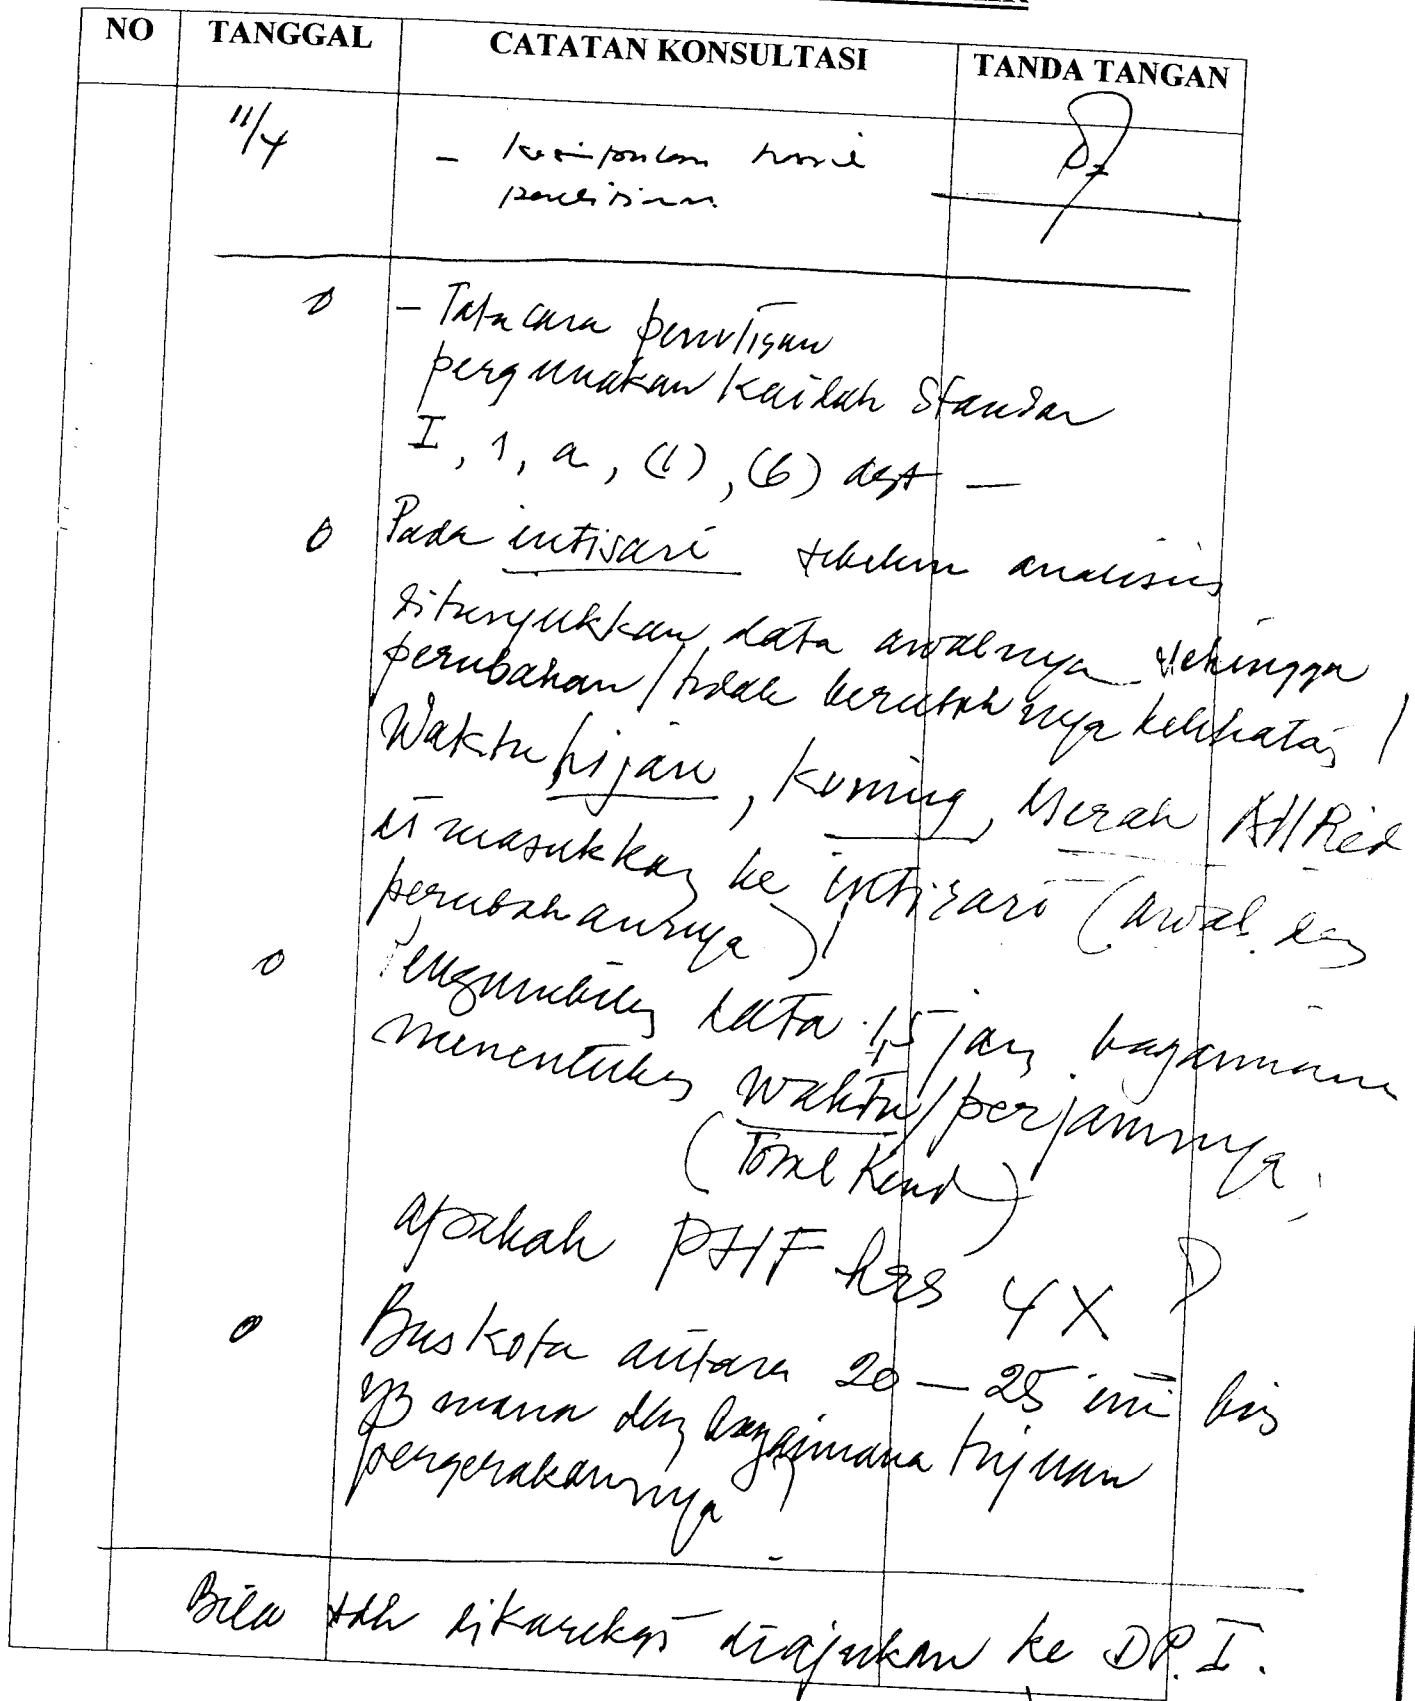 NO TANGGAL CATATAN KONSULTASI TANDA TANGAN
11/4 - kesimpulan hasil
penelitian
- Tata cara penulisan
pergunakan kaidah standar
I, 1, a, (1), (6) dst —
Pada intisari sebelum analisis
ditunjukkan data awalnya sehingga
perubahan / tidak berubahnya kelihatan !
Waktu hijau, kuning, Merah All Red
dimasukkan ke intisari (awal dan
perubahannya) !
Pengambilan data 1,5 jam bagaimana
menentukan waktu / perjamnya
(Total Kend)
apakah PHF hrs 4X ?
Bus kota antara 20 — 25 ini bis
yg mana dan bagaimana tujuan
pergerakannya
Bila sdh dikoreksi diajukan ke DP. I.